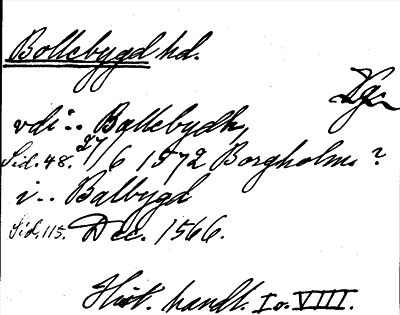 Bollebygd hd.
Vgl.
vdi :. Bollebydh,
Sid. 48. 27/6 1572 Borgholm ?
i .. Balbygd
Sid. 115. Dec. 1566.
Hist. handl. I o. VIII.